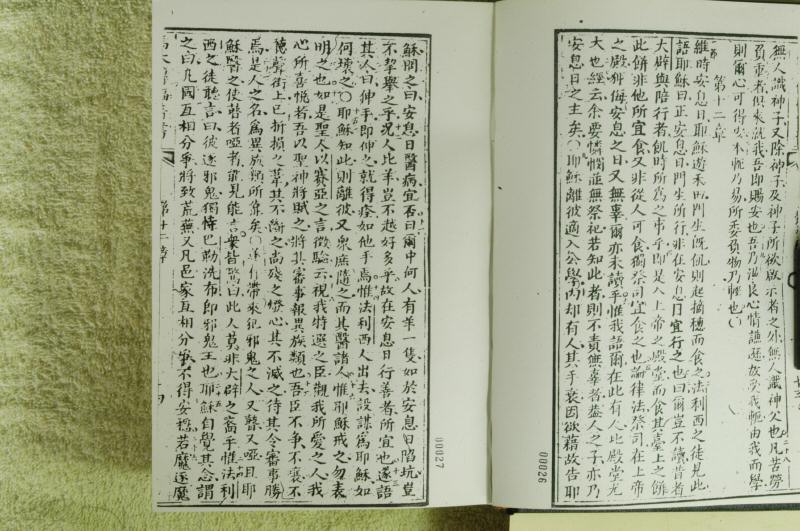 無人識神子又除神子及神子所欲啟示者之外無人識神父也凡苦勞
負重者但來就我吾即賜安也吾乃溫良心情謙遜故
我軛由我而學
則爾心可得安
軛乃易所委負物乃輕也
第十二章
維時安息日耶穌遊禾田門生既飢則起摘穗而食之法利西之徒見此
語耶穌曰正安息日門生所行非在安息日宜行之也曰爾豈不讀昔者
大辟與陪行者飢時所為之事乎即是入上帝之殿堂而食其臺上之餅
此餅非他所宜食又非從人可食獨祭司宜食之也論律法祭司在上帝
之殿
侮安息之日又無辜爾亦未讀乎惟我語爾在此有人比殿堂尤
大也經云余要憐憫
無祭祀若知此者則不責無辜者蓋人之子亦乃
安息日之主矣耶穌離彼適入公學內却有人其手衰因欲藉故告耶
穌問之曰安息日醫病宜否曰爾中何人有羊一隻如於安息日陷坑豈
不挈舉之乎況人比羊豈不越好多乎故在安息日行善者所宜也遂語
其人曰伸手即伸之就得痊如他手焉惟法利西人出去設謀為耶穌如
何壞之耶穌知此則離彼又眾庶隨之而其醫諸人惟耶穌戒之勿表
明之也如是聖人以賽亞之言徵驗云視我特選之臣觀我所愛之人我
心所喜悅者吾以聖神將賦之將其審事報異族類也吾臣不爭不嚷不
聲街上已折損之葦其不斷之尚殘之燈心其不滅之待其令審事勝
焉是人之名為異族類所靠矣
有帶來犯邪鬼之人又瞽又啞且耶
穌醫之使瞽者啞者能見能言眾皆驚曰此人莫非大辟之裔乎惟法利
西之徒聽言曰彼逐邪鬼獨恃巴勒洗布即邪鬼王也耶穌自覺其念謂
之曰凡國互相分爭將致荒蕪又凡邑家互相分爭不得安穩若魔逐魔
00027
00026